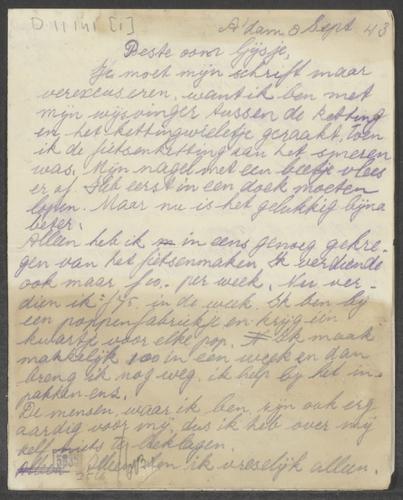 D 11141 [1]
A'dam 8 Sept 43
Beste oom Gijsje,
Je moet mijn schrift maar
verexcuseren, want ik ben met
mijn wijsvinger tussen de ketting
en het kettingwieletje geraakt, toen
ik de fietsenketting aan het smeren
was. Mijn nagel met een beetje vlees
er af. Heb eerst in een doek moeten
lopen. Maar nu is het gelukkig bijna
beter.
Alleen heb ik in eens genoeg gekre-
gen van het fietsenmaken. Ik verdiende
ook maar f 10,- per week. Nu ver-
dien ik f 75,- in de week. Ik ben bij
een poppenfabriekje en krijg een
kwartje voor elke pop. Ik maak
makkelijk 100 in een week en dan
breng ik nog weg, ik help bij het in-
pakken enz.
De mensen, waar ik ben, zijn ook erg
aardig voor mij, dus ik heb over mij
zelf niets te beklagen.
Alleen ben ik vreselijk alleen.